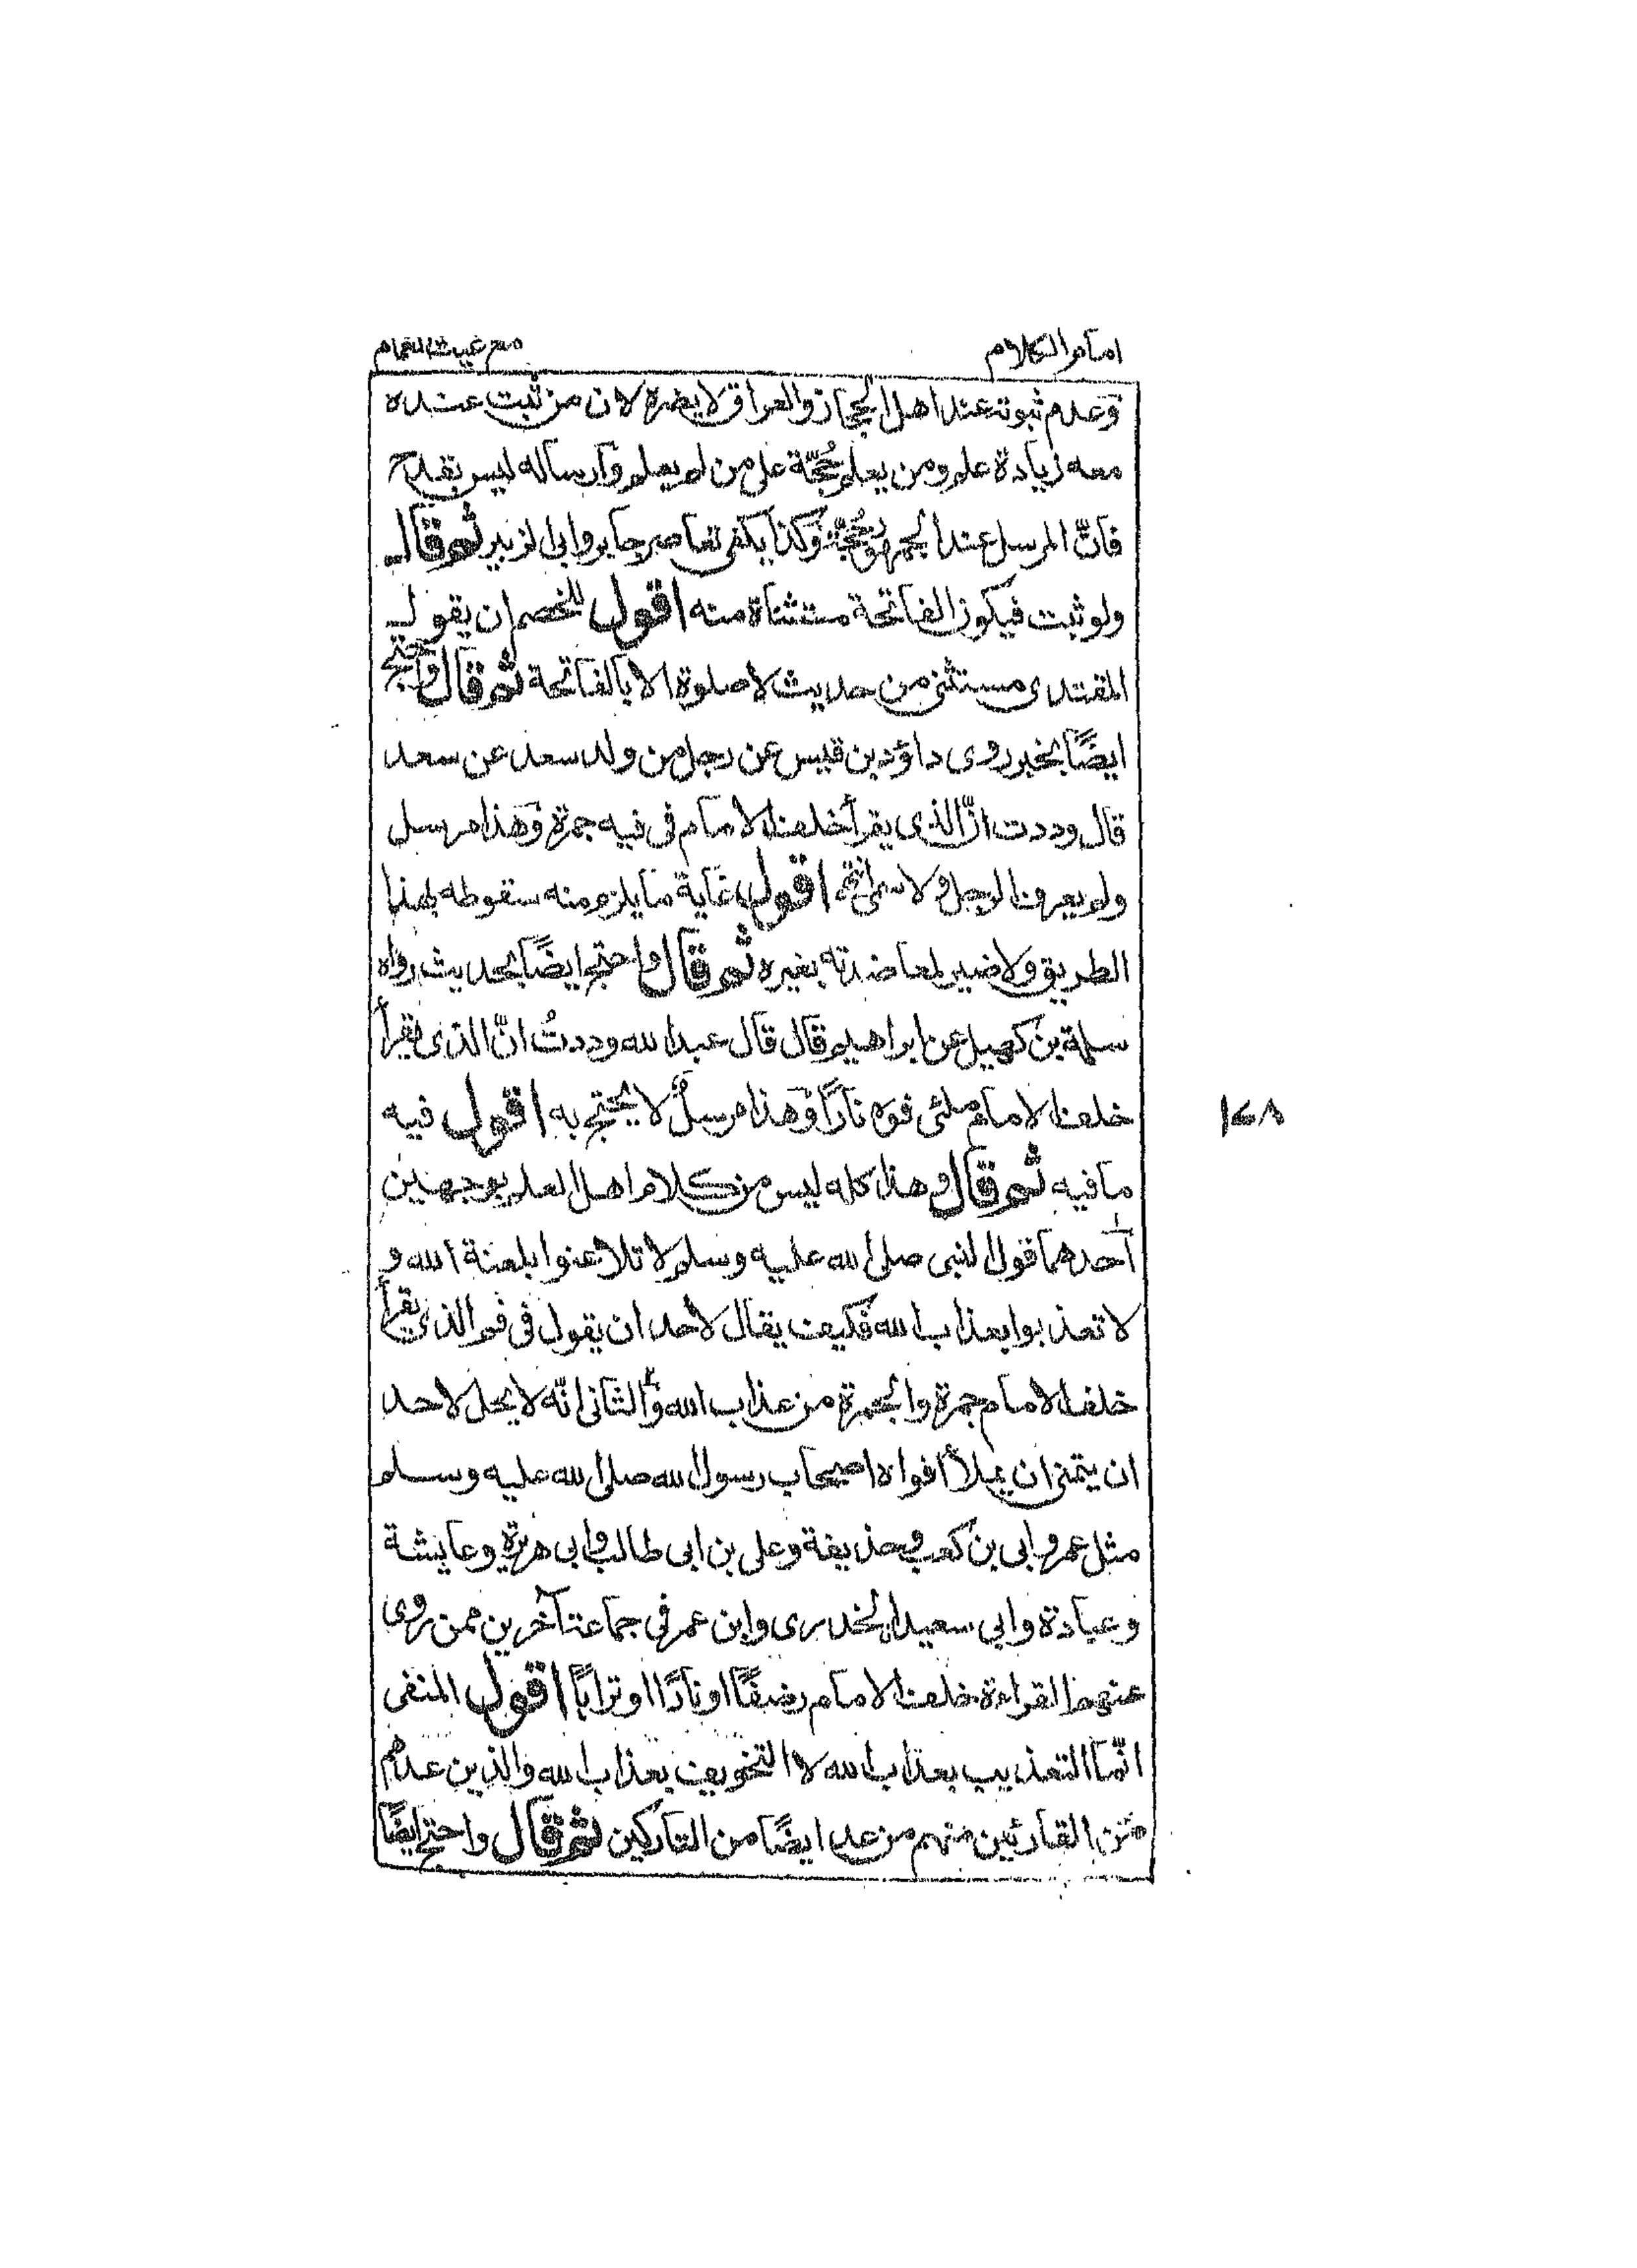 امام الكلام
مع غيث الغمام
وعدم ثبوته عند اهل الحجاز والعراق لا يضره لان من ثبت عنده
معه زيادة علم ومن يعلم حُجّة على من لم يعلم وارساله ليس بقدح
فانّ المرسل عند الجمهور حُجّة وكذا يكفى تعاصر جابر وابى الزبير ثم قال
ولو ثبت فيكون الفاتحة مستثناة منه اقول للخصم ان يقول
المقتدى مستثنى من حديث لا صلوة الا بالفاتحة ثم قال واحتج
ايضًا بخبر روى داؤد بن قيس عن رجل من ولد سعد عن سعد
قال وددت انّ الذى يقرأ خلف الامام فى فيه جمرة وهذا مرسل
ولم يعرف الرجل ولا سمى انتهى اقول غاية ما يلزم منه سقوطه بهذا
الطريق ولا ضير لمعاضدته بغيره ثم قال واحتج ايضًا بحديث رواه
سلمة بن كهيل عن ابراهيم قال قال عبد الله وددتُ انّ الذى يقرأ
خلف الامام ملئ فوه نارًا وهذا مرسلٌ لا يحتج به اقول فيه
ما فيه ثم قال وهذا كله ليس من كلام اهل العلم بوجهين
احدهما قول النبى صلى الله عليه وسلم لا تلاعنوا بلعنة الله و
لا تعذبوا بعذاب الله فكيف يقال لاحد ان يقول فى فم الذى يقرأ
خلف الامام جمرة والجمرة من عذاب الله والثانى انّه لا يحل لاحد
ان يتمنى ان يملأ افواه اصحاب رسول الله صلى الله عليه وسلم
مثل عمر وابى بن كعب وحذيفة وعلى بن ابى طالب وابى هريرة وعايشة
وعبادة وابي سعيد الخدرى وابن عمر فى جماعة آخرين ممن روى
عنهم القراءة خلف الامام رضفًا او نارًا او ترابًا اقول المنفى
انّما التعذيب بعذاب الله لا التخويف بعذاب الله والذين عدهم
من القارئين منهم من عد ايضًا من التاركين ثم قال واحتج ايضًا
١٤٨